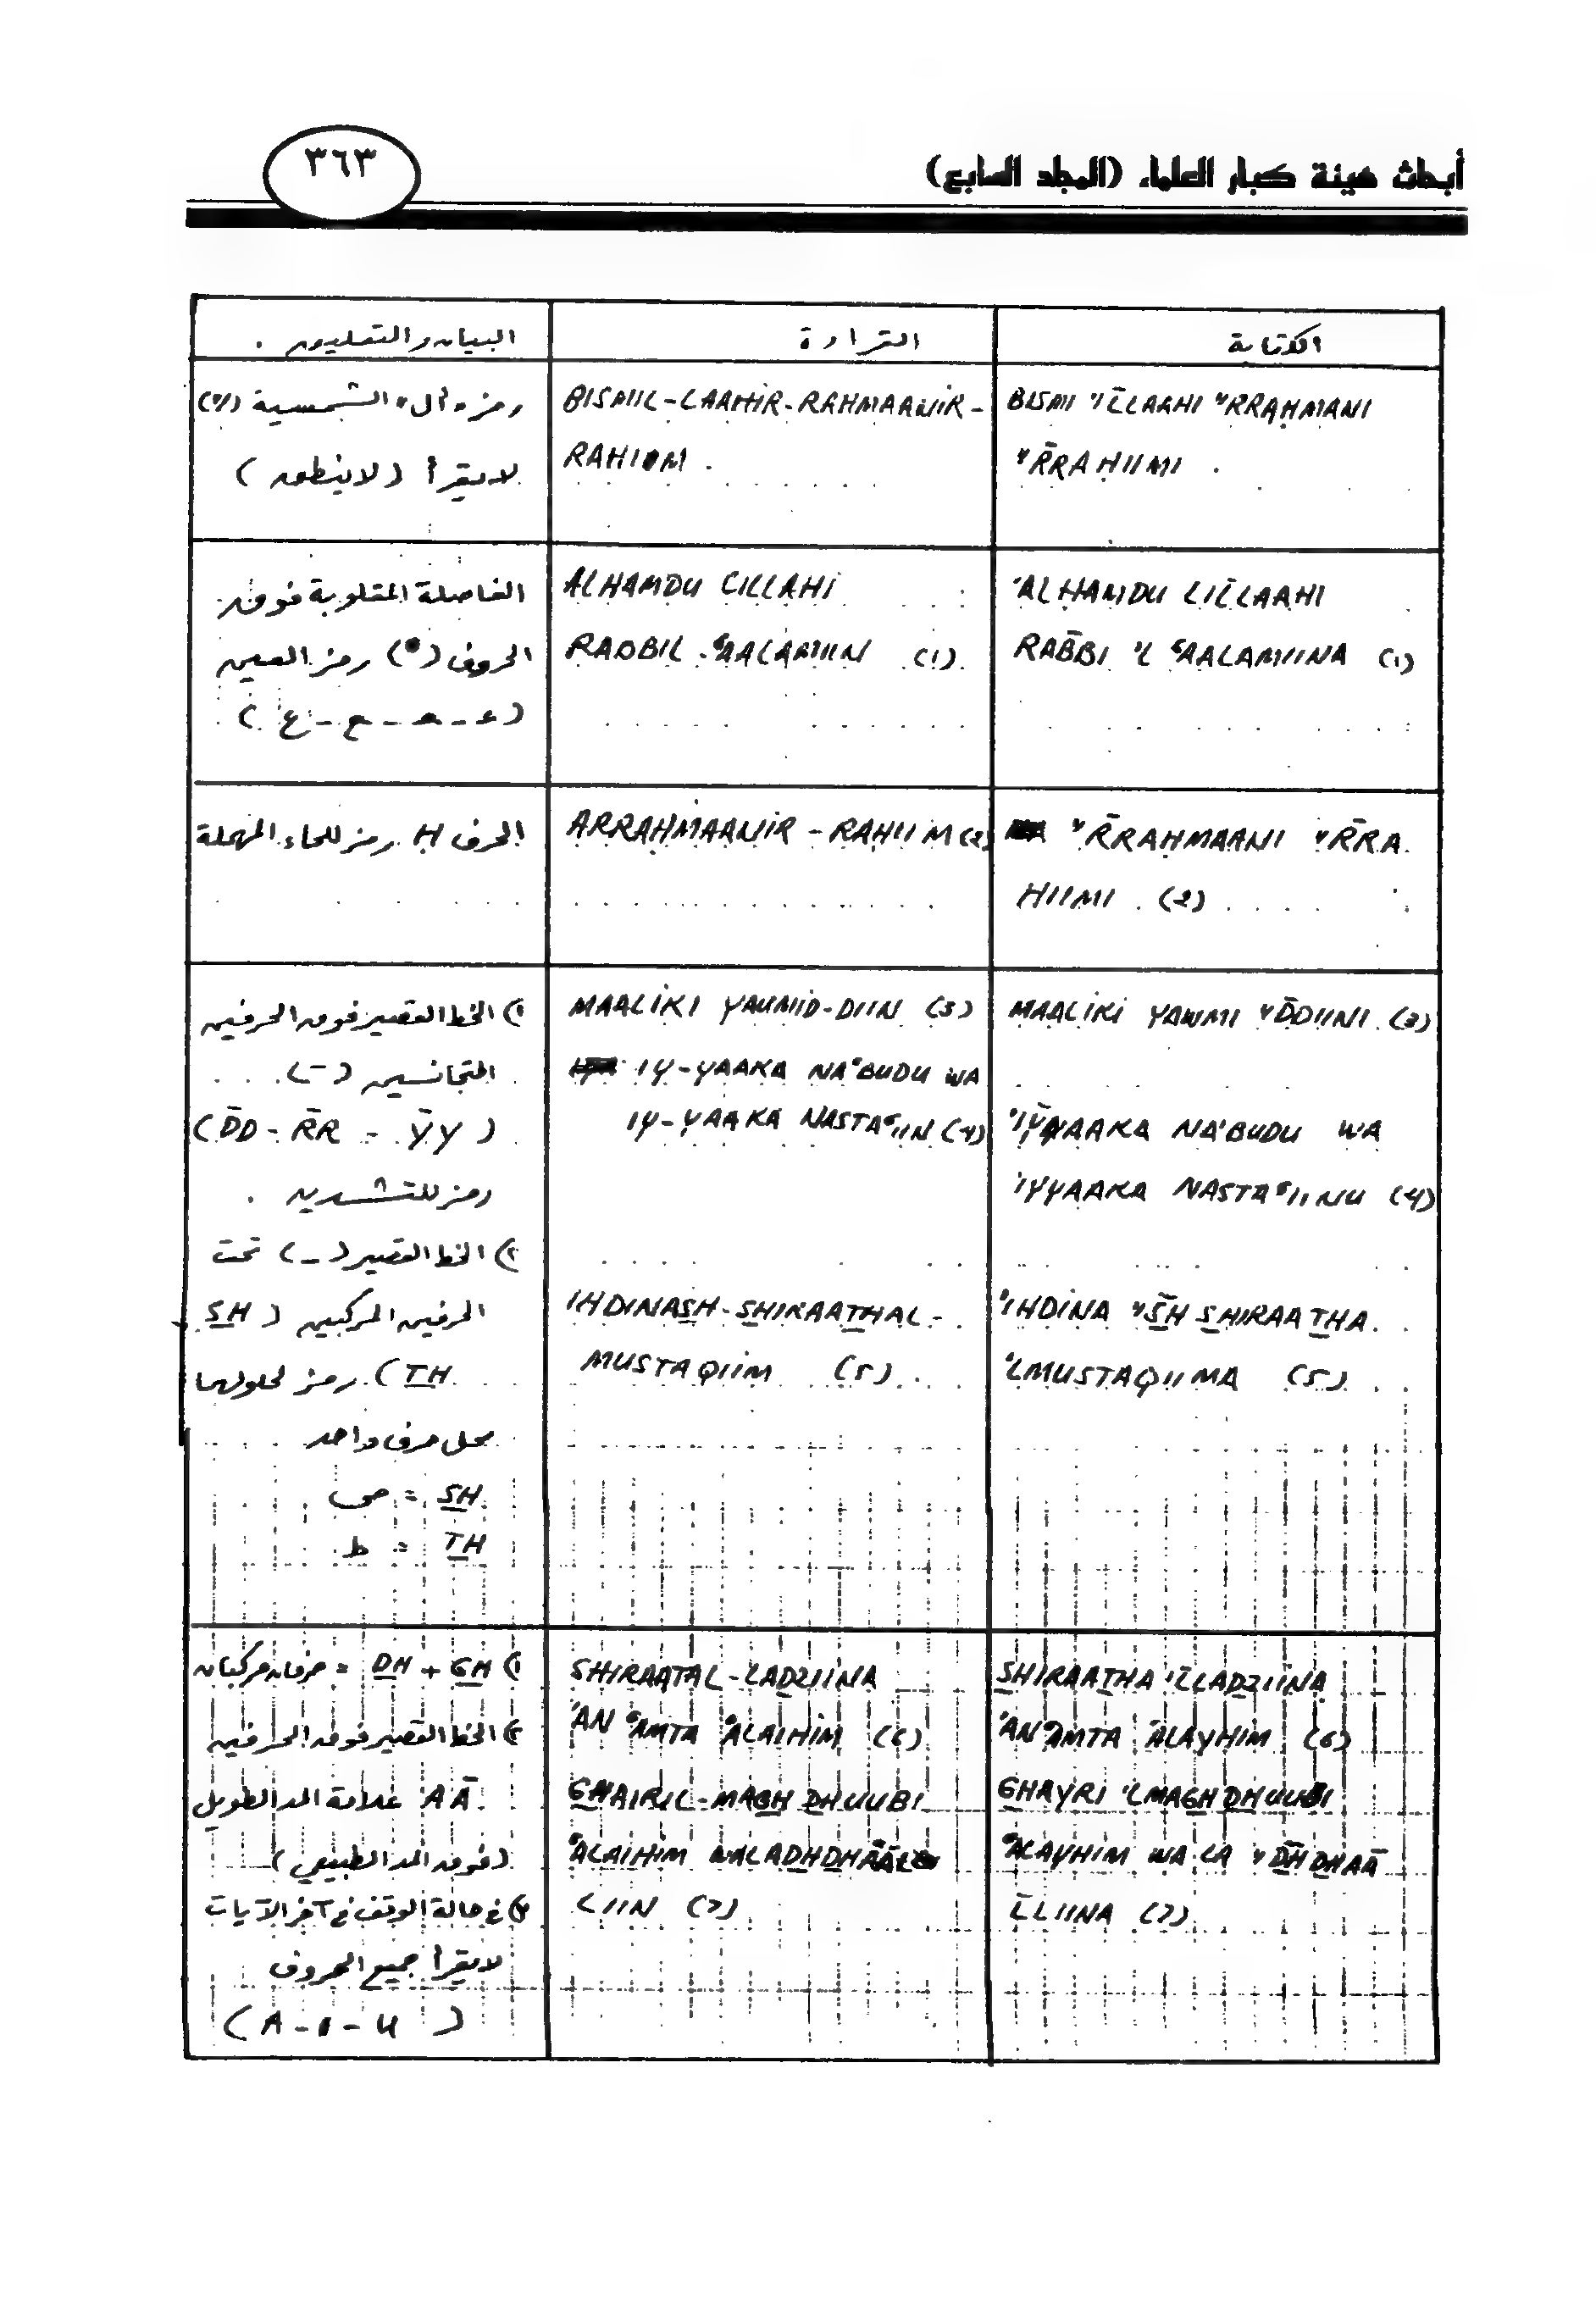 أبحاث هيئة كبار العلماء (المجلد السابع)
٣٦٣
الكتابة
القراءة
البيان والتعليق .
BISMI 'ĪLLAAHI "RRAḤMANI
"R̄RAḤIIMI .
BISMIL-LAAHIR-RAHMAANIR-
RAHIIM .
رمز «ال» الشمسية (")
لا يقرأ (لا ينطق)
'ALḤAMDU LIL̄LAAHI
RAB̄BI 'L ʿAALAMIINA (1)
ALHAMDU LILLAHI
RABBIL-ʿAALAMIIN (1).
الفاصلة المقلوبة فوق
الحروف (ʿ) رمز العين
(ء - ه - ح - ع)
"R̄RAḤMAANI "R̄RA
HIIMI . (2)
ARRAḤMAANIR-RAḤIIM (2)
الحرف Ḥ رمز للحاء المهملة
MAALIKI YAWMI "D̄DIINI (3)
'IȲYAAKA NAʿBUDU WA
'IYYAAKA NASTAʿIINU (4)
'IHDINA "S̄H SHIRAATHA
'LMUSTAQIIMA (5)
MAALIKI YAUMID-DIIN (3)
IY-YAAKA NAʿBUDU WA
IY-YAAKA NASTAʿIIN (4)
IHDINASH-SHIRAATHAL-
MUSTAQIIM (5)
١) الخط القصير فوق الحرفين
المتجانسين (-)
(D̄D - R̄R - ȲY)
رمز للتشديد .
٢) الخط القصير (_) تحت
الحرفين المركبين (SH
TH) رمز لحلولهما
محل حرف واحد
SH = ص
TH = ط
SHIRAATHA 'L̄LADZIINA
'ANʿAMTA ʿALAYHIM (6)
GHAYRI 'LMAGHDHUUBI
ʿALAYHIM WA LA "D̄HDHAĀ
L̄LIINA (7)
SHIRAATAL-LADZIINA
'ANʿAMTA ʿALAIHIM (6)
GHAIRIL-MAGHDHUUBI
ʿALAIHIM WALADHDHĀĀL
LIIN (7)
١) DH + GH = حرفان مركبان
٢) الخط القصير فوق الحرفين
AĀ علامة المد الطويل
(فوق المد الطبيعي)
٣) في حالة الوقف في آخر الآيات
لا يقرأ جميع الحروف
(A - I - U)